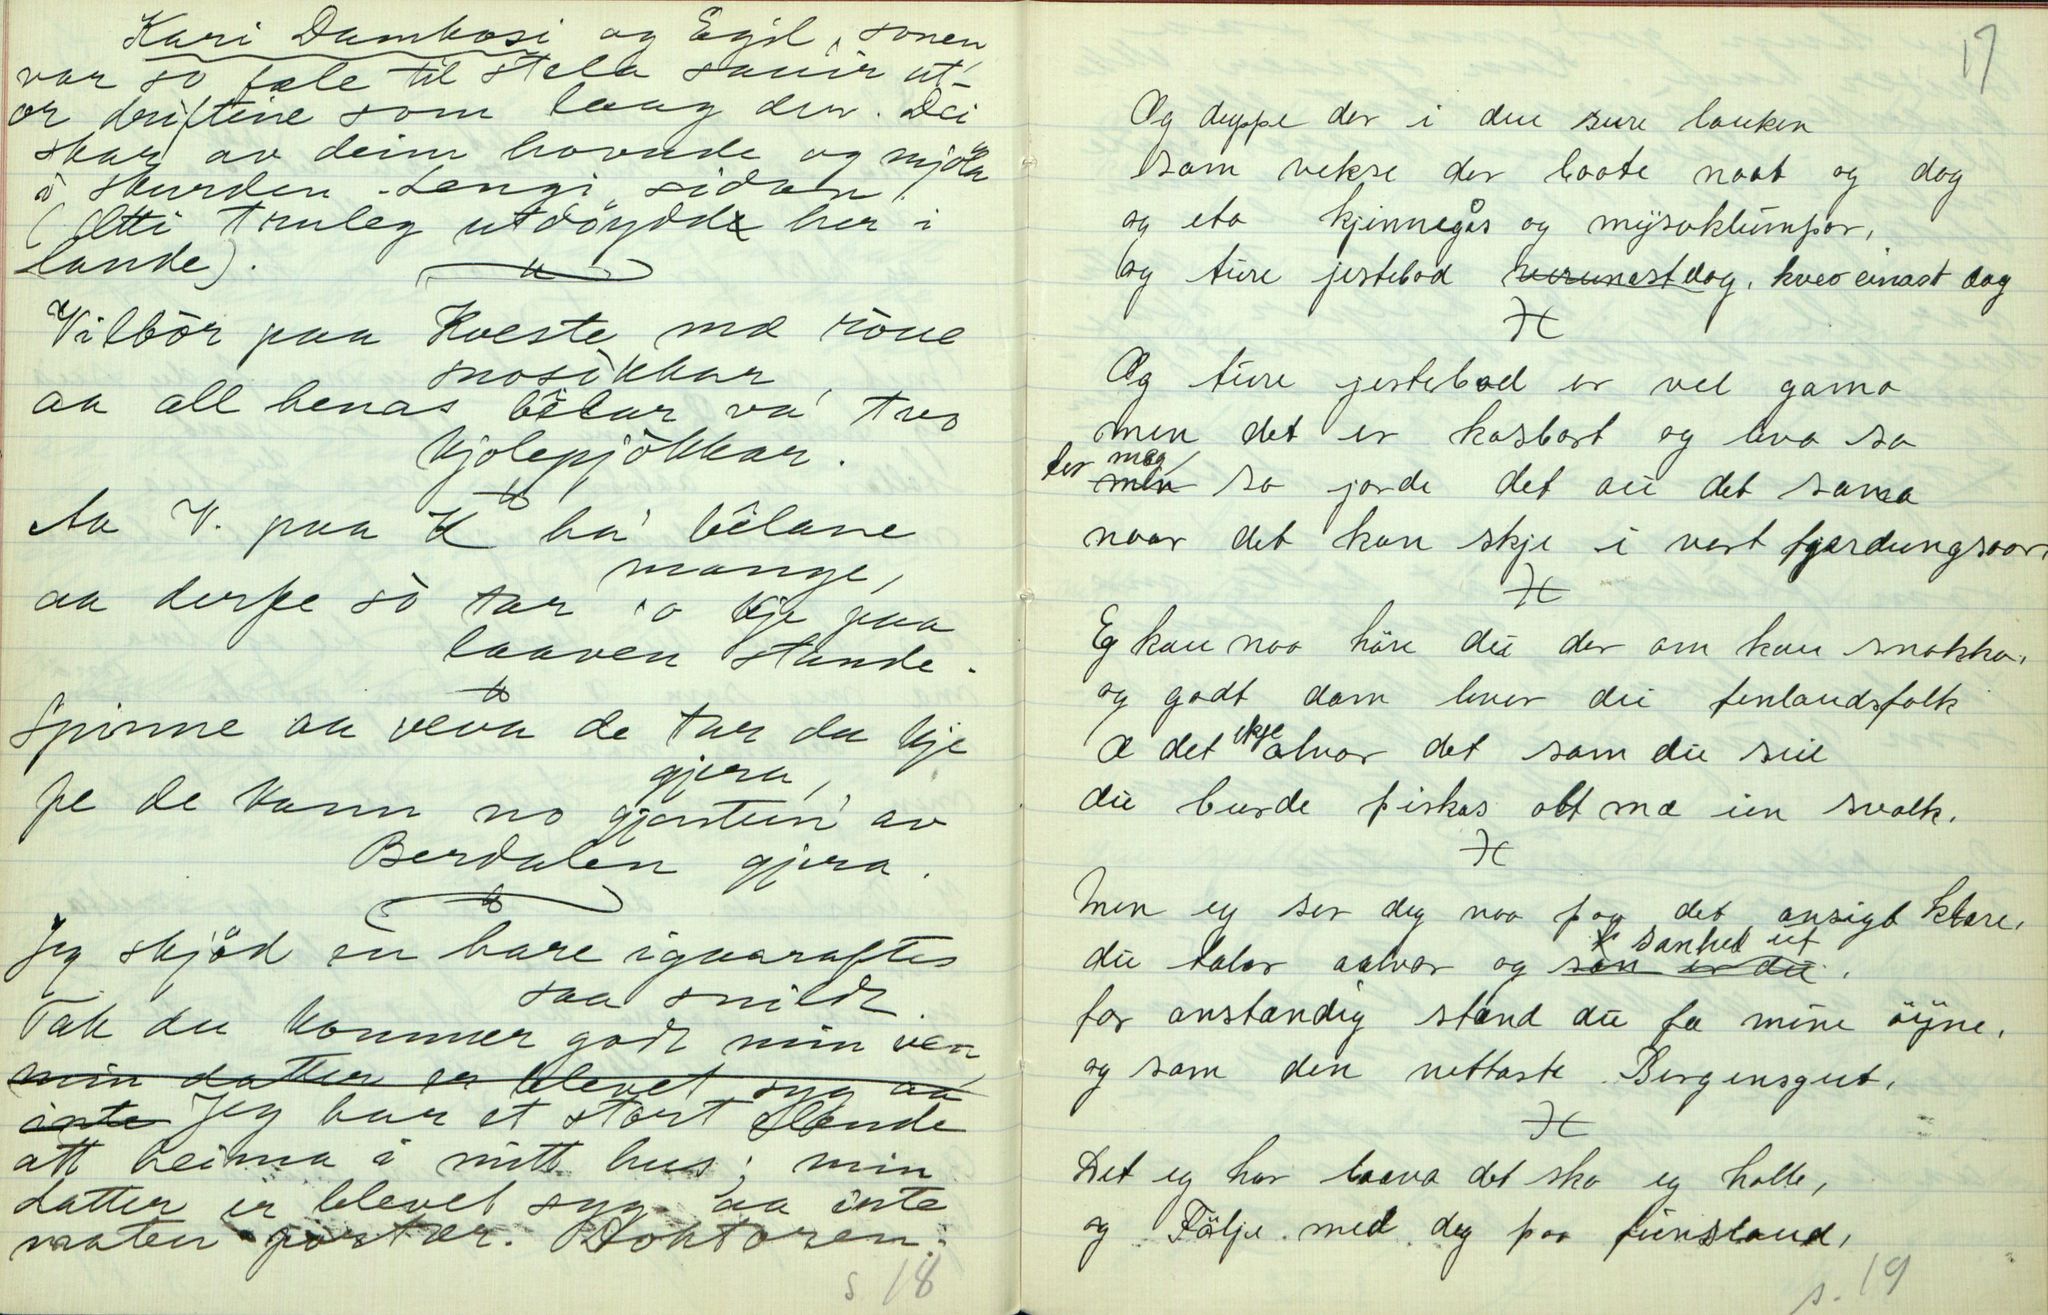 Kari Dambosi og Egil, sonen
var so fæle til stela sauir ut-
or driftine som laag der. Dei
skar av deim hovude og mjöla
i skurden. Lengi sidan.
(Ætti truleg utdöydde her i
lande).
Vilbör paa Kveste mæ röue
snosikkar
aa all henas bêlar va' tvo
kjolepjökkar.
Aa V. paa K ha' bêlane
mange,
aa derfe so tar 'o kje paa
laaven stande.
Spinne aa veva de tar du kje
gjera,
fe de kann no gjenten' av
Berdalen gjera.
Jeg skjöd en hare igaaraftes
saa snildt.
Tak du kommer godt min ven
min datter er blevet syg aa
inte Jeg har et stort elende
att heima i mitt hus; min
datter er blevet syg aa inte
maten forstær. Doktoren
s 18
17
Og duppe der i den sure lauken
som vekse der baate naat og dag
og eta kjinnegås og mysoklumpar,
og ture jestebod dag, kveo einast dag
Og ture jestebod er vel gama
men det er kosbart og leva so
ter mag
men so jorde det au det sama
naar det kan skje i vart fjerdungsaar.
Eg kan naa höre du der om kan snakka,
og godt dom lever du finlandsfolk
Æ det ikje alvor det som du siie
du burde piskas alt mæ ien svolk.
Men eg ser deg naa paa det ansigt klare,
sanhed ut
du talar aalvar og san er du.
for anstændig stænd du fe mine öyne,
og som den nettaste Bergensgut,
Det eg har laava det ska eg halle,
og Följe med deg paa finsland,
s. 19